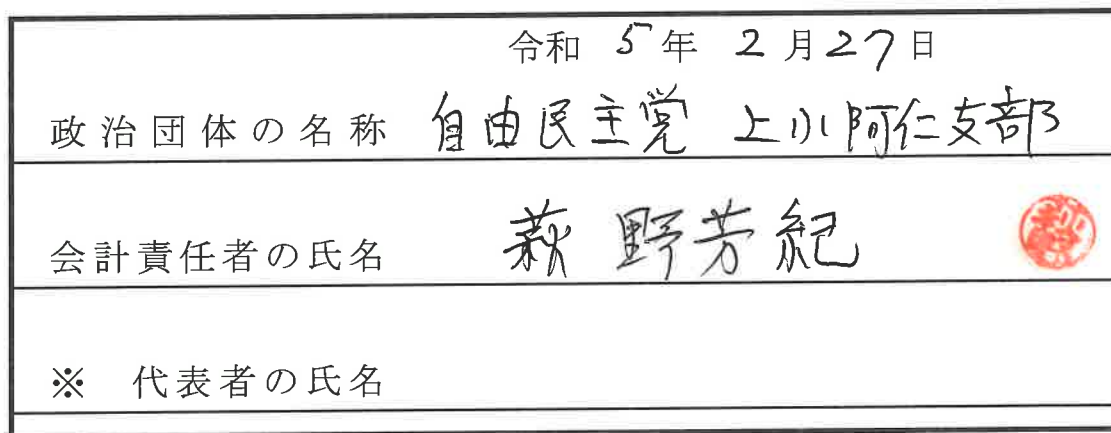 令和 5年 2月27日
政治団体の名称 自由民主党 上小阿仁支部
会計責任者の氏名 萩野芳紀
※ 代表者の氏名